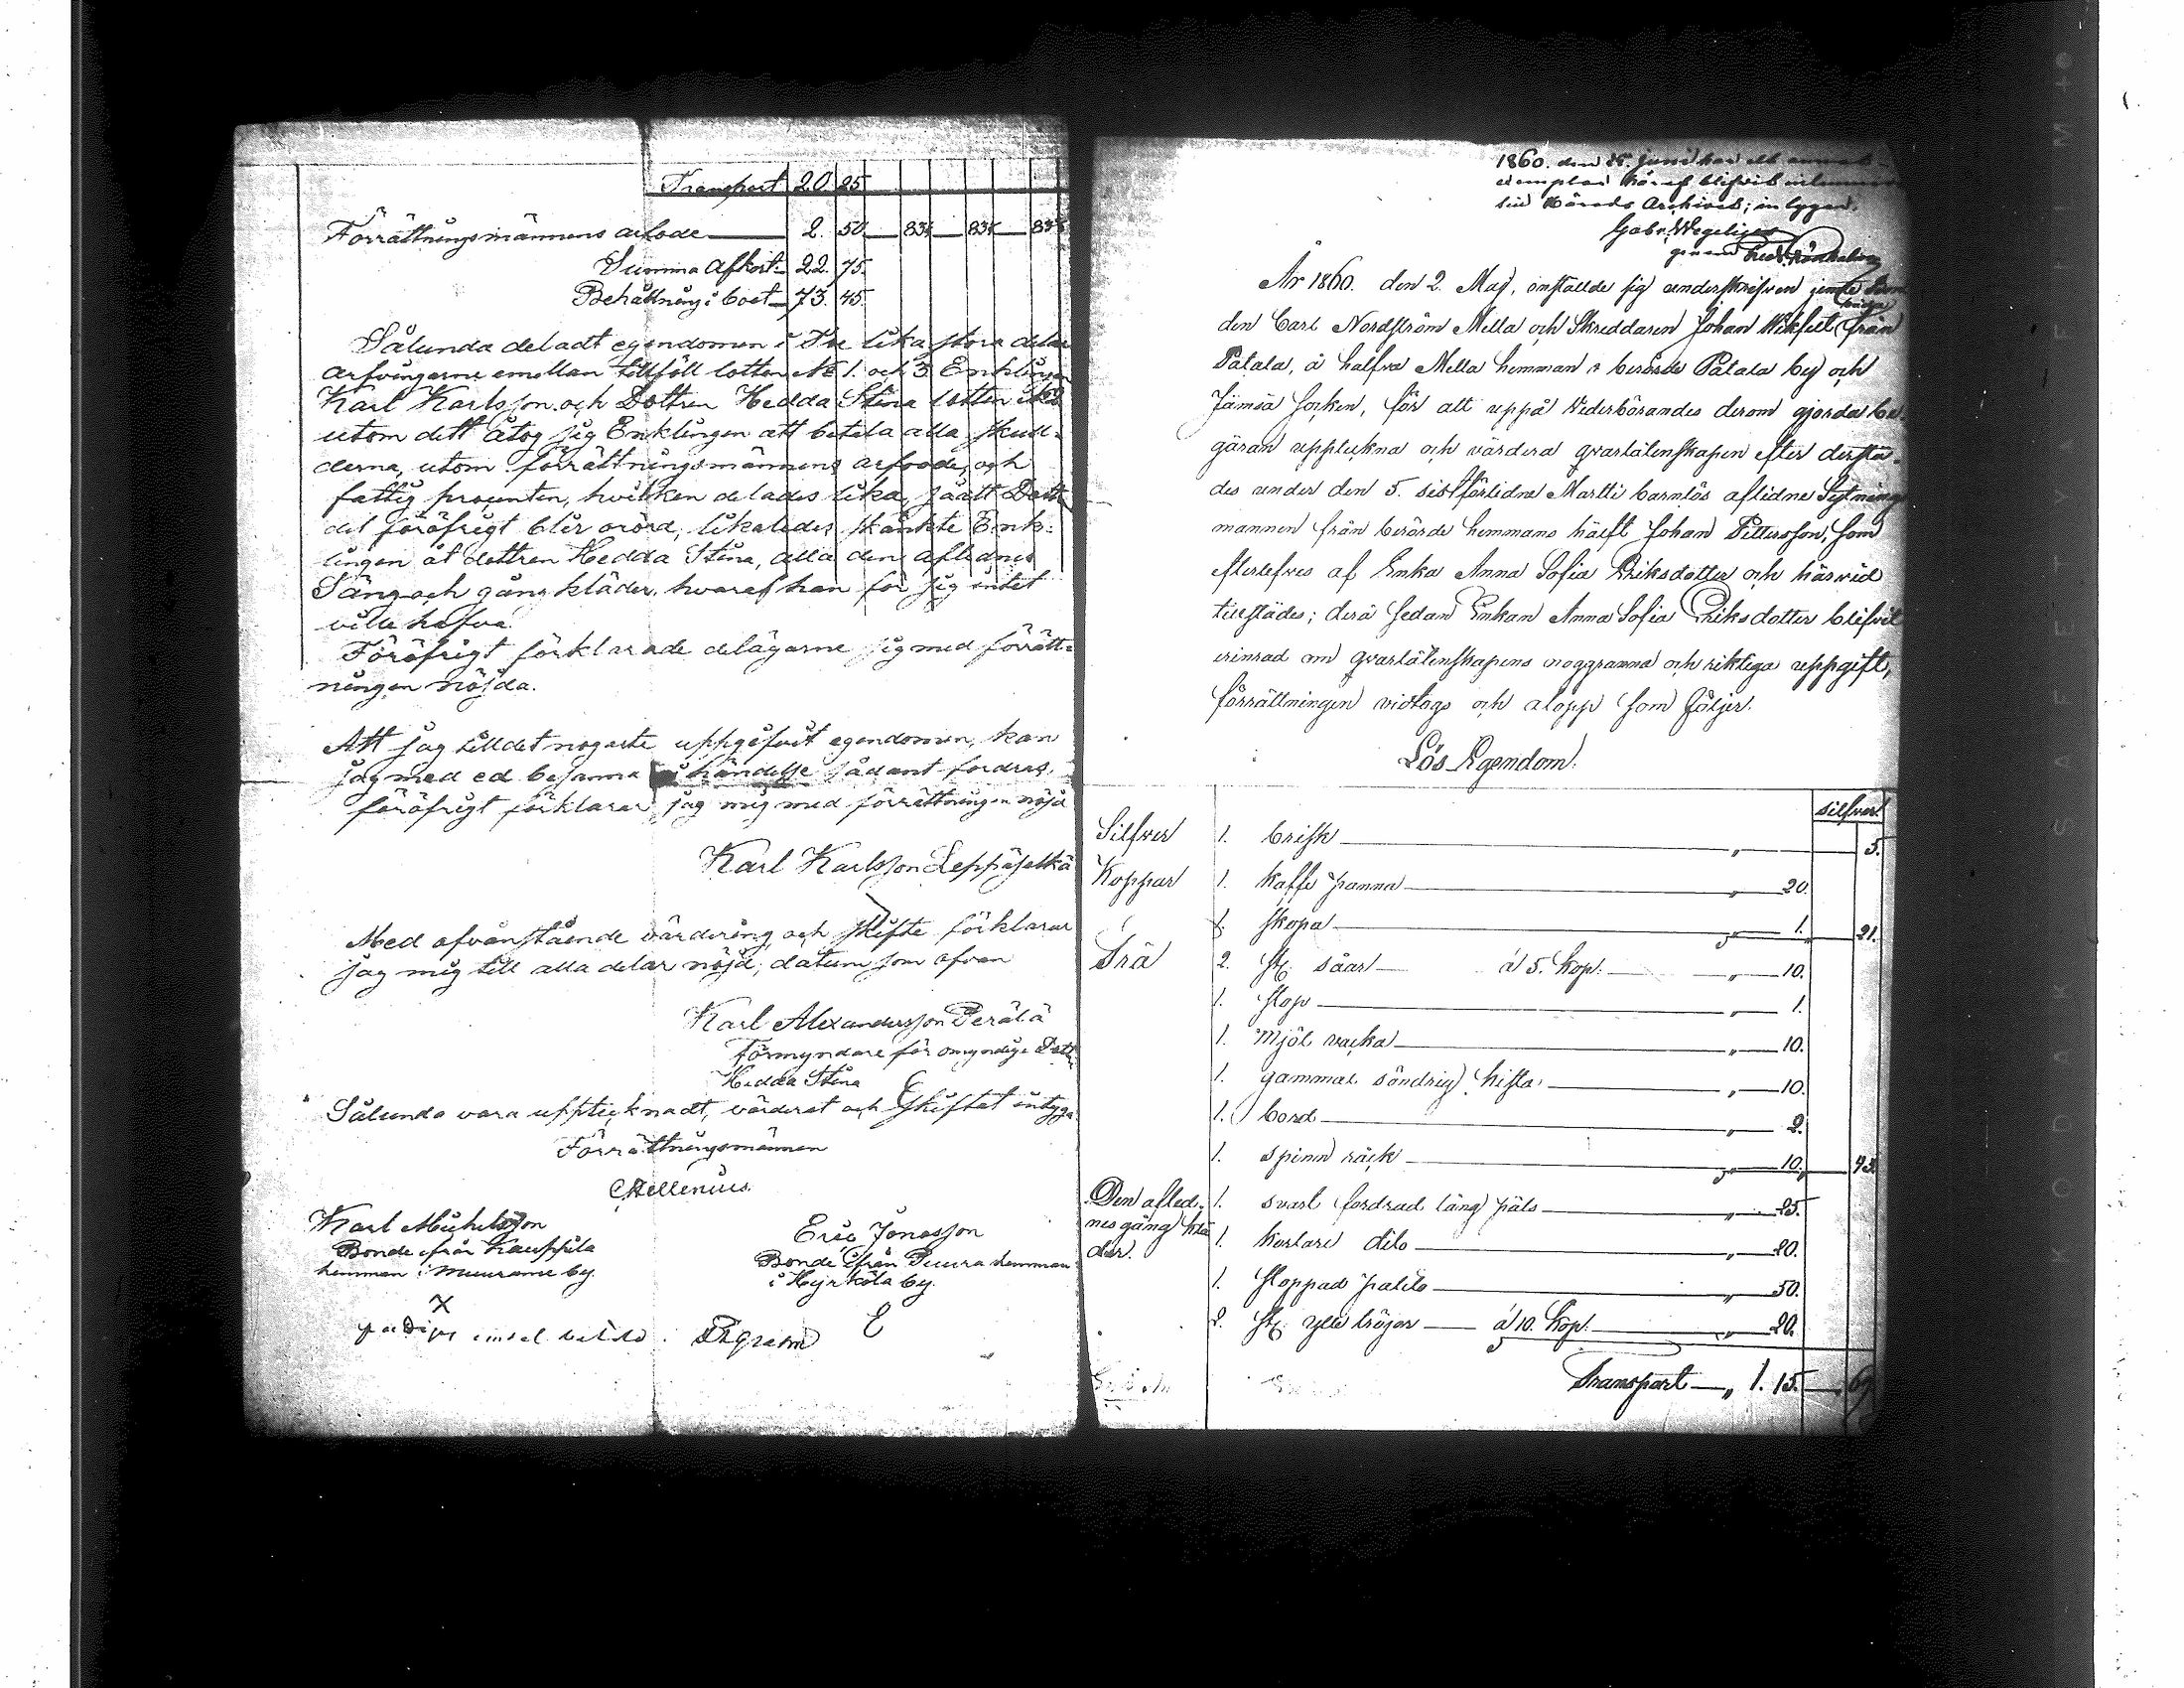 Transport 20 25
Förrättningsmännens arfode 2. 50 83⅓ 83⅓ 83⅓
Summa Afkort 22. 75.
Behållning i boet 73. 45.
Sålunda deladt egendomen i Tre lika stora delar
arfvingarne emellan tillföll lotten No 1. och 3 Enklingen
Karl Karlsson och Dottren Hedda Stina lotten
utom dett åtog sig Enklingen att betala alla skul-
derna, utom förrättningsmännens arfvode, och
fattig procenten, hvilken delades lika, så att
det föröfrigt blir orörd, likaledes skänkte Enk-
lingen åt dottren Hedda Stina, alla den aflidnes
Säng och gång kläder, hvaraf han för sig intet
ville hafva.
Föröfrigt förklarade delägarne sig med förrätt-
ningen nöjda.
Att jag till det nogaste uppgifvit egendomen, kan
jag med ed besanna i händelse sådant fordras.
föröfrigt förklarar jag mig med förrättningen nöjd
Karl Karlsson Leppäselkä
Med ofvanstående värdering och skifte förklarar
jag mig till alla delar nöjd; datum som ofvan
Karl Alexandersson Perälä
förmyndare för omyndige
Hedda Stina
Sålunda vara upptecknadt, värderat och skiftat intyga
Förrättningsmännen
Karl Michelsson
Bonde ifrån Kauppila
hemman i Muurame by.
Eric Jonasson
Bonde ifrån Puura hemman
i Hyrkölä by.
X
E
1860. den Juni har ett
exemplar häraf blifvit
till Härads Archivet; intygar.
Gabr. Wegelius
genom
År 1860. den 2. Maj, instälde sig underskrifven jemte
den Carl Nordström Mella och Skreddaren Johan Wikfelt från
Patala, å halfva Mella hemman i berörde Patala by och
Jämsä socken, för att uppå Wederbörandes derom gjorda be-
gäran uppteckna och värdera qvarlåtenskapen efter derstä-
des under den 5. sistförlidne Martii barnlös aflidne Sytnings
mannen från berörde hemmans hälft Johan Pettersson, som
efterlefves af Enka Anna Sofia Eriksdotter och härvid
tillstädes; derå sedan Enkan Anna Sofia Eriksdotter blifvit
erinrad om qvarlåtenskapens noggranna och riktiga uppgift,
förrättningen vidtogs och alopp som följer.
Lös Egendom.
Silfver.
Silfver 1. brisk " 5.
Koppar 1. kaffe panna " 20.
1. skopa " 1. 21.
Trä 2. st. såar á 5. kop. " 10.
1. stop " 1.
1. Mjöl vacka " 10.
1. gammal söndrig kista " 10.
1. bord " 2.
1. spinn råck " 10. 43.
Den afled- 1. svart fordrad lång päls " 25.
nes gång klä 1. kortare dito " 20.
der. 1. stoppad palito " 50.
2. st. ylle tröjor á 10. kop. " 20.
Transport " 1. 15.